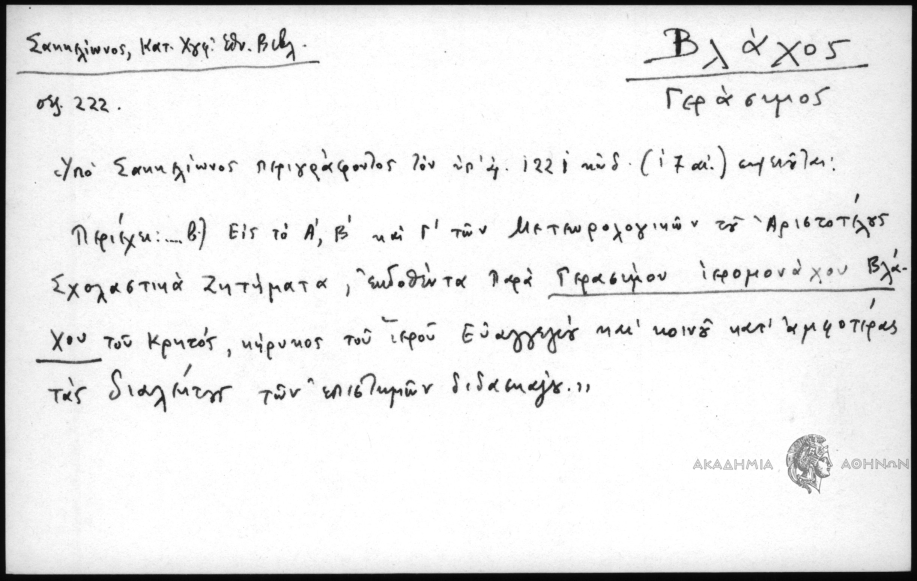 Σακκελίωνος, Κατ. Χγφ. Εθν. Βιβλ.
Βλάχος
Γεράσιμος
σελ. 222.
Ὑπὸ Σακκελίωνος περιγράφοντος τὸν ὑπ' ἀρ. 1221 κώδ. (17 αἰ.)
Περιέχει:.... β) Εἰς τὸ Α', Β' καὶ Γ' τῶν Μετεωρολογικῶν τοῦ Ἀριστοτέλους
Σχολαστικὰ Ζητήματα, ἐκδοθέντα παρὰ Γερασίμου ἱερομονάχου Βλά-
χου τοῦ Κρητός, κήρυκος τοῦ ἱεροῦ Εὐαγγελίου καὶ κοινοῦ κατ' ἀμφοτέρας
τὰς διαλέκτους τῶν ἐπιστημῶν διδασκάλου.»
ΑΚΑΔΗΜΙΑ ΑΘΗΝΩΝ